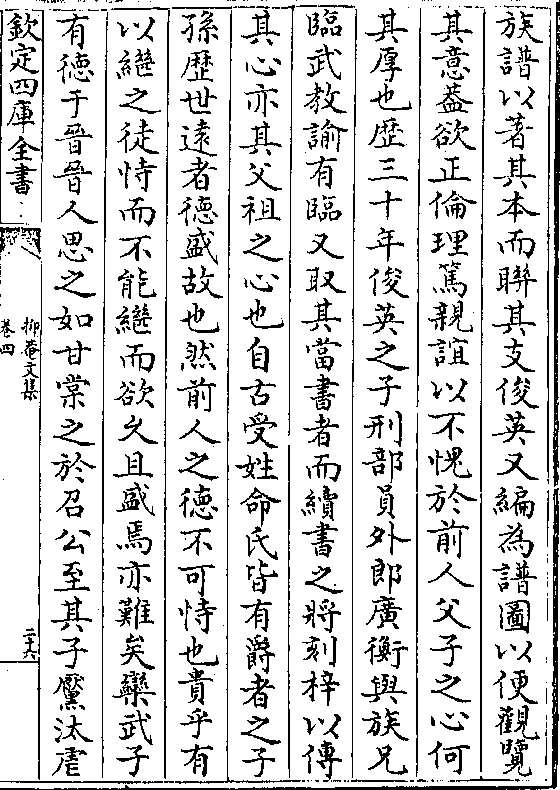 族譜以著其本而聯其支俊英又編為譜圖以便觀覽
其意葢欲正倫理篤親誼以不愧於前人父子之心何
其厚也歴三十年俊英之子刑部員外郎廣衡與族兄
臨武教諭有臨又取其當書者而續書之將刻梓以傳
其心亦其父祖之心也自古受姓命氏皆有爵者之子
孫歴世遠者德盛故也然前人之德不可恃也貴乎有
以繼之徒恃而不能繼而欲久且盛焉亦難矣欒武子
有德于晉晉人思之如甘棠之於召公至其子黶汰虐
欽定四庫全書
抑菴文集
卷四
二十六